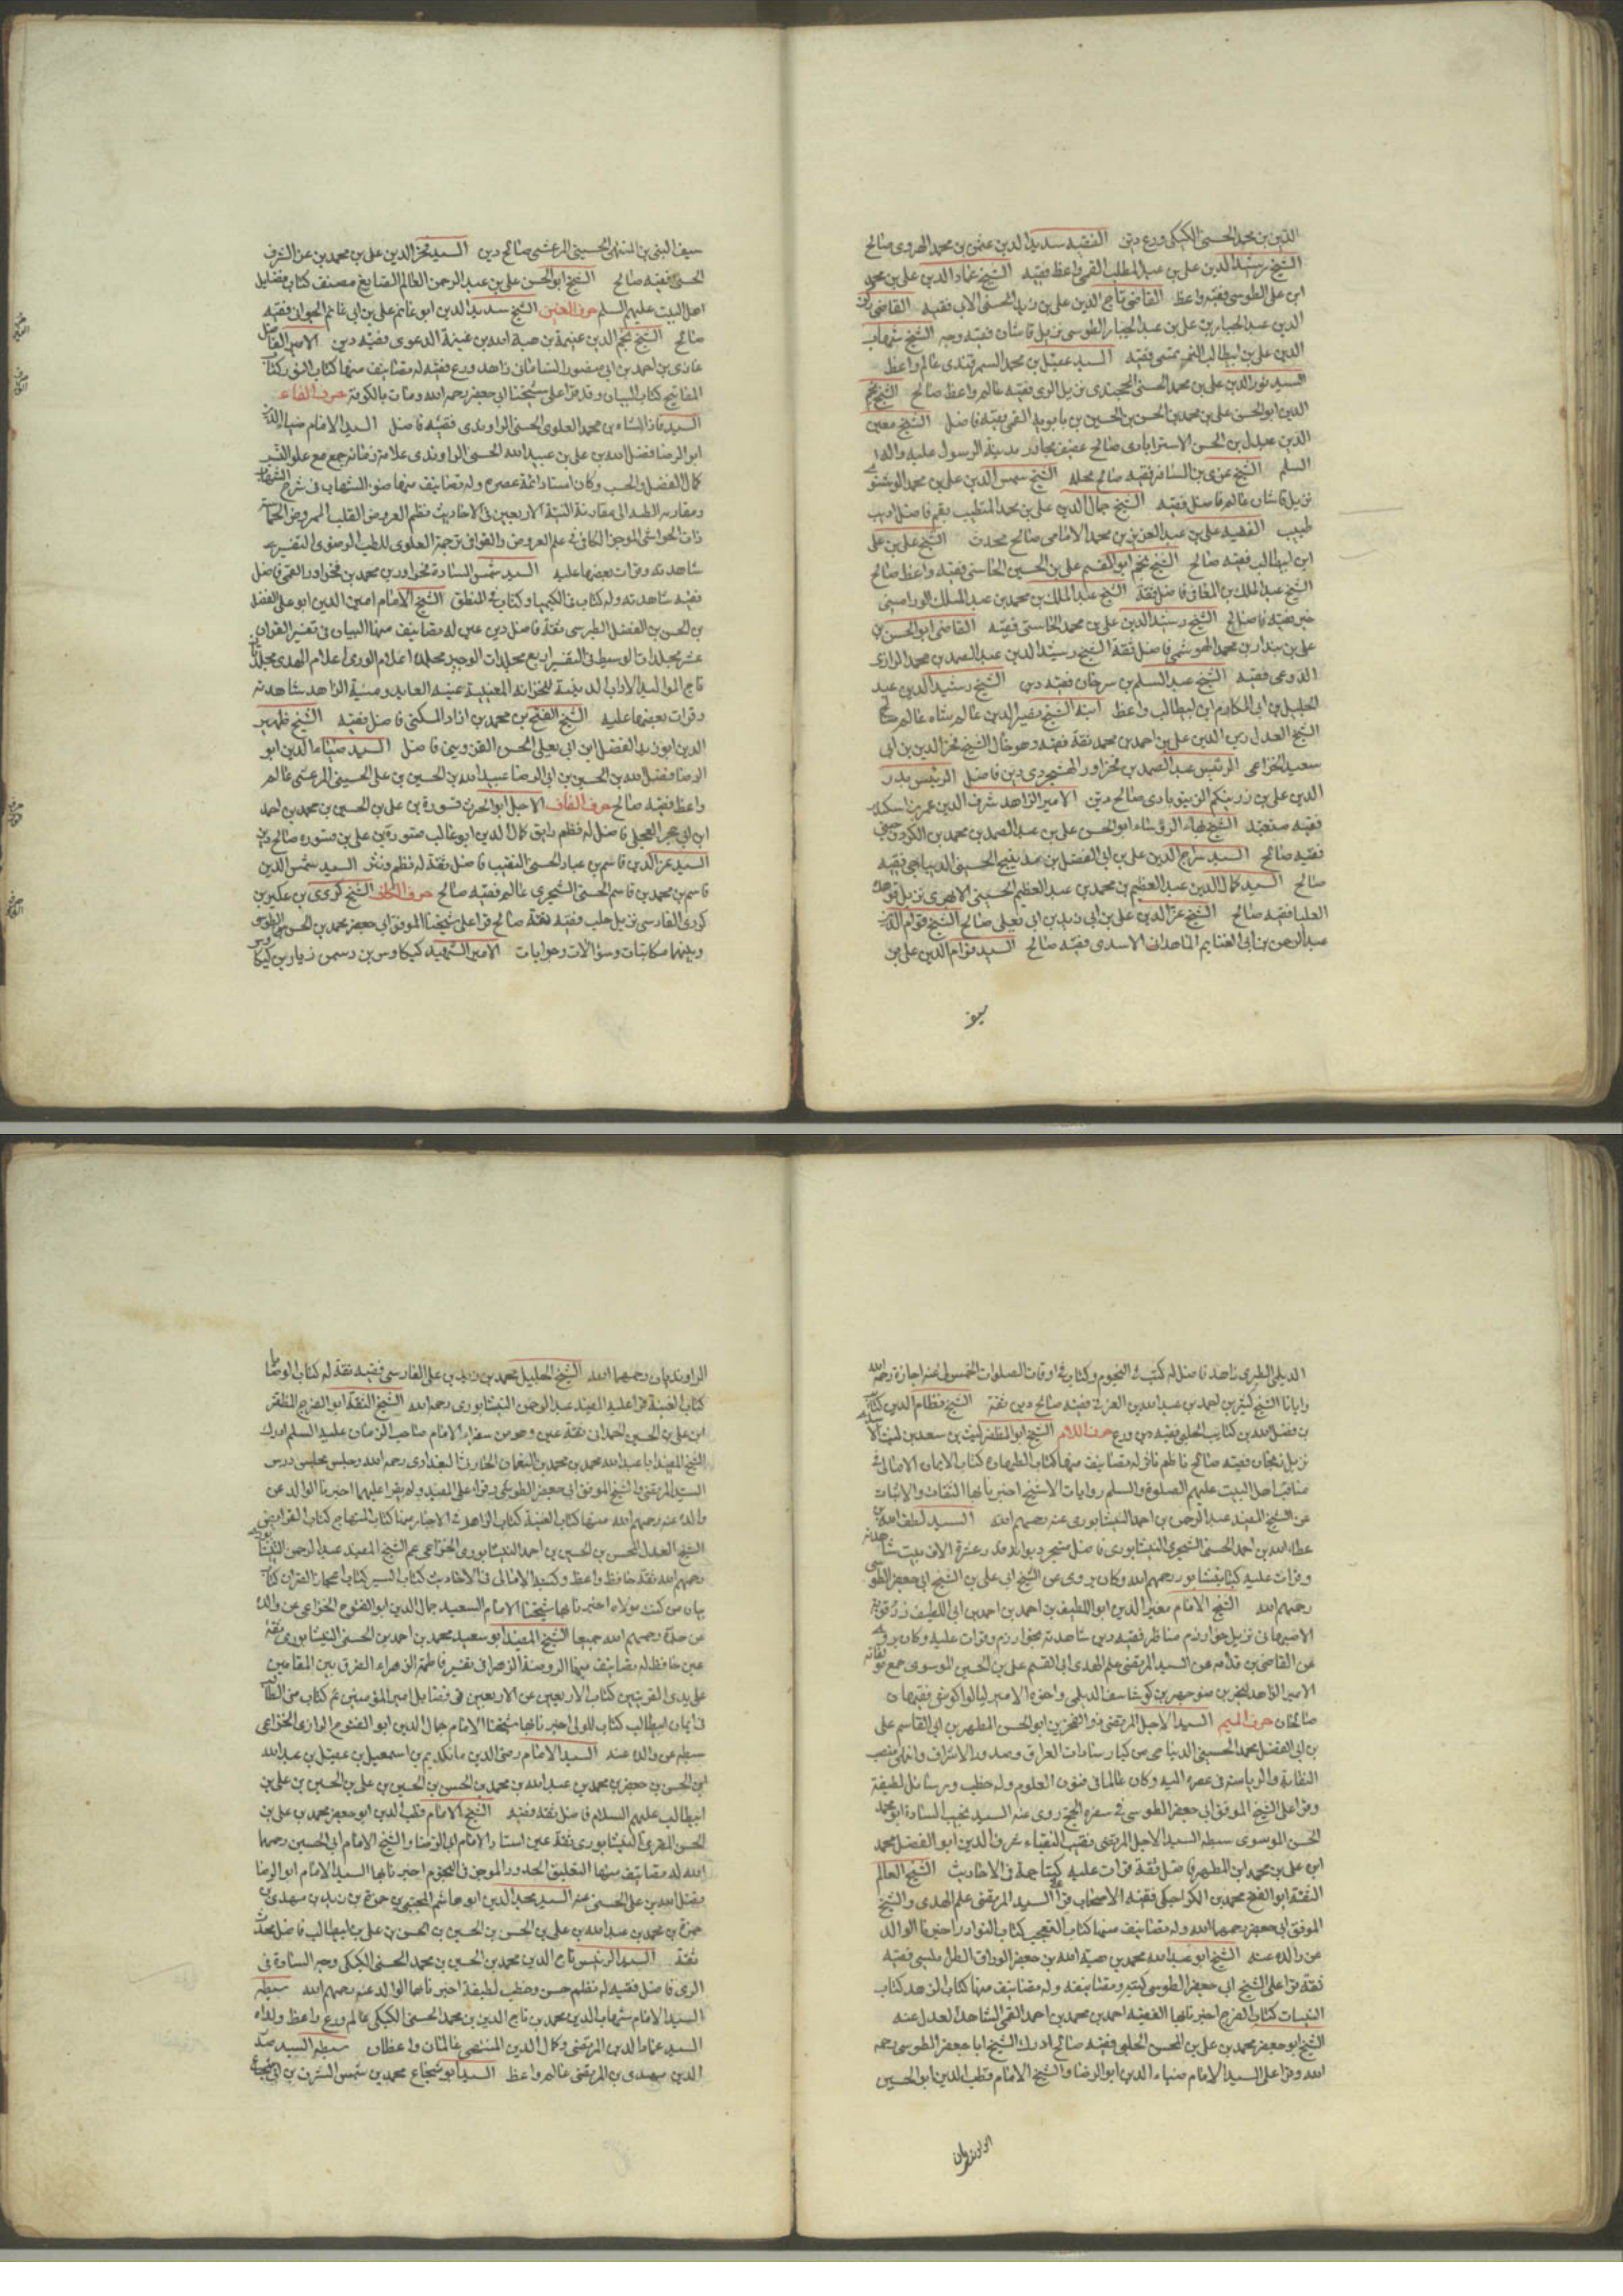 الدين بن مجد الحسني الكيكي ورع دين الفقيه سديد الدين عثمن بن محمد الهروي صالح
الشيخ رشيد الدين علي بن عبد المطلب القمي واعظ فقيه الشيخ عماد الدين علي بن محمد
ابن علي الطوسي فقيه واعظ القاضي تاج الدين علي بن زيد الحسني الابي فقيه القاضي
الدين عبد الجبار بن علي بن عبد الجبار الطوسي نزيل قاشان فقيه وجه الشيخ شهاب
الدين علي بن ابيطالب فقيه السيد عقيل بن محمد السمرقندي عالم واعظ
السيد نور الدين علي بن محمد الحسني الخجندي نزيل الري فقيه عالم واعظ صالح الشيخ نجم
الدين ابو الحسن علي بن محمد بن الحسن بن الحسين بن بابويه القمي فقيه فاضل الشيخ معين
الدين عبدل بن الحسن الاسترابادي صالح عفيف مجاور مدينة الرسول عليه واله
السلم الشيخ فقيه صالح محله الشيخ شمس الدين علي بن محمد الوشنوي
نزيل قاشان عالم فاضل فقيه الشيخ جمال الدين علي بن محمد المتطبب بقم فاضل اديب
طبيب الفقيه علي بن عبد العزيز بن محمد الامامي صالح محدث الشيخ علي بن علي
ابن ابيطالب فقيه صالح الشيخ نجم ابو القسم علي بن الحسين الجاستي فقيه واعظ صالح
الشيخ عبد الملك بن المعافي فاضل ثقة الشيخ عبد الملك بن محمد بن عبد الملك الوراميني
فقيه صالح الشيخ رشيد الدين علي بن محمد الجاستي فقيه القاضي ابو الحسن
علي بن بندار بن محمد الهوشمي فاضل ثقة الشيخ رشيد الدين عبد الصمد بن محمد الرازي
الدوعي فقيه الشيخ عبد السلم بن سرحان فقيه دين الشيخ رشيد الدين عبد
الجليل بن ابي المكارم ابن ابيطالب واعظ ابنه الشيخ نصير الدين عالمشاه عالم صالح
الشيخ العدل زين الدين علي بن احمد بن محمد ثقة فقيه وهو خال الشيخ فخر الدين بن ابي
سعيد الخزاعي الرئيس عبد الصمد بن فخراور دين فاضل الرئيس بدر
الدين علي بن زرينكم الزينوآبادي صالح دين الامير الزاهد شرف الدين عمر بن اسكندر
فقيه متعبد الشيخ بهاء الرؤساء ابو الحسن علي بن عبد الصمد بن محمد
فقيه صالح السيد سراج الدين علي بن ابي الفضل بن الحسيني الديباجي فقيه
صالح السيد كمال الدين عبد العظيم بن محمد بن عبد العظيم الحسيني الابهري نزيل قوهده
العليا فقيه صالح الشيخ عز الدين علي بن ابي زيد بن ابي يعلى صالح الشيخ قوام الدين
عبد الرحمن بن ابي الغنايم الماهداني الاسدي فقيه صالح السيد قوام الدين علي بن
سيف
سيف النبي بن المنتهى الحسيني المرعشي صالح دين السيد فخر الدين علي بن محمد بن عز الشرف
الحسني فقيه صالح الشيخ ابو الحسن علي بن عبد الرحمن العالم الصايغ مصنف كتاب فضايل
اهل البيت عليهم السلم حرف الغين الشيخ سديد الدين ابو غانم علي بن ابي غانم الجواني فقيه
صالح الشيخ نجم الدين غنيمة بن هبة الله بن غنيمة الدعوي فقيه دين الامير الفاضل
غازي بن احمد بن ابي منصور الساماني زاهد ورع فقيه له تصانيف منها كتاب النور كتاب
المفاتيح كتاب البيان وقد قرأ على شيخنا ابي جعفر رحمه الله ومات بالكوفة حرف الفاء
السيد فاذشاه بن محمد العلوي الحسني الراوندي فقيه فاضل السيد الامام ضياء الدين
ابو الرضا فضل الله بن علي بن عبيد الله الحسني الراوندي علامة زمانه جمع مع علو النسب
كمال الفضل والحسب وكان استاذ ائمة عصره وله تصانيف منها ضوء الشهاب في شرح الشهاب
ومقاربة الطية الى مقارنة النية الاربعين في الاحاديث نظم العروض للقلب المروض الحماسة
ذات الحواشي الموجز الكافي في علم العروض والقوافي ترجمة العلوي للطب الرضوي التفسير
شاهدته وقرات بعضها عليه السيد شمس السادة فخراور بن محمد بن فخراور القمي فاضل
فقيه شاهدته وله كتاب في الكيميا وكتاب في المنطق الشيخ الامام امين الدين ابو علي الفضل
بن الحسن بن الفضل الطبرسي ثقة فاضل دين عين له تصانيف منها البيان في تفسير القران
عشر مجلدات الوسيط في التفسير اربع مجلدات الوجيز مجلدة اعلام الورى اعلام الهدى مجلدتان
تاج المواليد الاداب الدينية للخزانة المعينية غنية العابد ومنية الزاهد شاهدته
وقرات بعضها عليه الشيخ الفتح بن محمد بن ازاد المسكني فاضل فقيه الشيخ ظهير
الدين ابو زيد الفضل ابن ابي يعلى الحسن القزويني فاضل السيد ضياء الدين ابو
الرضا فضل الله بن الحسين بن ابي الرضا عبيد الله بن الحسين بن علي الحسيني المرعشي عالم
واعظ فقيه صالح حرف القاف الاجل ابو الحرث قسورة بن علي بن الحسين بن محمد بن احمد
ابن ابي حجر العجلي فاضل له نظم رايق كمال الدين ابو غالب قسورة بن علي بن قسورة صالح دين
السيد عز الدين قاسم بن عباد الحسني النقيب فاضل ثقة له نظم ونثر السيد شمس الدين
قاسم بن محمد بن قاسم الحسني الشجري عالم فقيه صالح حرف الكاف الشيخ كردي بن عكبر بن
كردي الفارسي نزيل حلب فقيه ثقة صالح قرا على شيخنا الموفق ابي جعفر محمد بن الحسن الطوسي
وبينهما مكاتبات وسؤالات وجوابات الامير الشهيد كيكاوس بن دشمن زيار بن كيكاوس
الديلمي الطبري زاهد فاضل له كتب في النجوم وكتاب في اوقات الصلوات الخمس عنه اجازة رحمه الله
وايانا الشيخ كثير بن احمد بن عبد الله بن العربي فقيه صالح دين ثقة الشيخ نظام الدين كتائب
بن فضل الله بن كتايب الحلبي فقيه دين ورع حرف اللام الشيخ ابو المظفر ليث بن سعد بن ليث
نزيل زنجان فقيه صالح ناظم ناثر له تصانيف منها كتاب الطهارة كتاب الايمان الامالي في
مناقب اهل البيت عليهم الصلوة والسلم روايات الاشج اخبرنا بها الثقات والاثبات
عن الشيخ المفيد عبد الرحمن بن احمد النيشابوري عنه رحمهم الله السيد لطف الله بن
عطاء الله بن احمد الحسني الشجري النيشابوري فاضل متبحر ديوانه قدر عشرة الاف بيت شاهدته
وقرات عليه كتابا بنيشابور رحمهم الله وكان يروي عن الشيخ ابي علي بن الشيخ ابي جعفر الطوسي
رحمهم الله الشيخ الامام ابو اللطيف بن احمد بن ابي اللطيف زرقويه
الاصبهاني نزيل خوارزم مناظر فقيه دين شاهدته بخوارزم وقرات عليه وكان يروي
عن القاضي بن قدامه عن السيد المرتضى علم الهدى ابي القسم علي بن الحسين الموسوي جميع مؤلفاته
الامير الزاهد لنجر بن منوجهر بن كرشاسف الديلمي واخوه الامير فقيهان
صالحان حرف الميم السيد الاجل المرتضى ذو الفخرين ابو الحسن المطهر بن ابي القاسم علي
بن ابي الفضل محمد الحسيني الديباجي من كبار سادات العراق وصدور الاشراف وانتهى منصب
النقابة والرياسة في عصره اليه وكان عالما في فنون العلوم وله خطب ورسائل لطيفة
وقرا على الشيخ الموفق ابي جعفر الطوسي في سفره الحج روى عنه السيد نجيب السادة ابو محمد
الحسن الموسوي سبطه السيد الاجل المرتضى نقيب النقباء شرف الدين ابو الفضل محمد
ابن علي بن محمد ابن المطهر فاضل ثقة قرات عليه كتابا جمة في الاحاديث الشيخ العالم
الثقة ابو الفتح محمد بن الكراجكي فقيه الاصحاب قرا على السيد المرتضى علم الهدى والشيخ
الموفق ابي جعفر رحمهما الله وله تصانيف منها كتاب التعجب كتاب النوادر اخبرنا الوالد
عن والده عنه الشيخ ابو عبد الله محمد بن هبة الله بن جعفر الوراق الطرابلسي فقيه
ثقة قرا على الشيخ ابي جعفر الطوسي كتبه وتصانيفه وله تصانيف منها كتاب الزهد كتاب
النيات كتاب الفرج اخبرنا بها الفقيه احمد بن محمد بن احمد القمي الشاهد العدل عنه
الشيخ ابو جعفر محمد بن علي بن المحسن الحلبي فقيه صالح ادرك الشيخ ابا جعفر الطوسي رحمه
الله وقرا على السيد الامام ضياء الدين ابو الرضا والشيخ الامام قطب الدين ابو الحسين
الراونديان
الراونديان رحمهما الله الشيخ الجليل محمد بن زيد بن علي الفارسي فقيه ثقة له كتاب الوصايا
كتاب الغيبة قرا على المفيد عبد الرحمن النيشابوري رحمه الله الشيخ الثقة ابو الفرج المظفر
ابن علي بن الحسين الحمداني ثقة عين وهو من سفراء الامام صاحب الزمان عليه السلم ادرك
الشيخ المفيد ابا عبد الله محمد بن محمد بن النعمان الحارثي البغدادي رحمه الله وجلس مجلس درس
السيد المرتضى والشيخ الموفق ابي جعفر الطوسي وقرا على المفيد ولم يقرا عليهما اخبرنا الوالد عن
والده عنه رحمهم الله منها كتاب الغيبة كتاب الزاهد في الاخبار كتاب المنهاج كتاب الفرايض
الشيخ العدل المحسن بن الحسين بن احمد النيشابوري الخزاعي عم الشيخ المفيد عبد الرحمن النيشابوري
رحمهم الله ثقة حافظ واعظ وكتبه الامالي في الاحاديث كتاب السير كتاب اعجاز القران كتاب
بيان من كنت مولاه اخبرنا بها شيخنا الامام السعيد جمال الدين ابو الفتوح الخزاعي عن والده
عن جده رحمهم الله جميعا الشيخ المفيد ابو سعيد محمد بن احمد بن الحسين النيشابوري ثقة
عين حافظ له تصانيف منها الروضة الزهراء في تفسير فاطمة الزهراء الفرق بين المقامين
كتاب الاربعين عن الاربعين في فضايل امير المؤمنين ع كتاب منى الطالب
في ايمان ابيطالب كتاب المولى اخبرنا بها شيخنا الامام جمال الدين ابو الفتوح الرازي الخزاعي
سبطه عن والده عنه السيد الامام رضي الدين مانكديم بن اسمعيل بن عقيل بن عبد الله
ابن الحسن بن جعفر بن محمد بن عبد الله بن محمد بن الحسن بن الحسين بن علي بن الحسين بن علي بن
ابيطالب عليهم السلام فاضل ثقة فقيه الشيخ الامام قطب الدين ابو جعفر محمد بن علي بن
الحسن المقري النيشابوري ثقة عين استاد الامام ابي الرضا والشيخ الامام ابي الحسين رحمهما
الله له تصانيف منها التعليق الحدود الموجز في النجوم اخبرنا بها السيد الامام ابو الرضا
فضل الله بن علي الحسني عنه السيد مجد الدين ابو هاشم المجتبى بن حمزة بن زيد بن مهدي بن
حمزة بن محمد بن عبد الله بن علي بن الحسن بن الحسين بن الحسن بن علي بن ابيطالب فاضل محدث
ثقة السيد الرئيس تاج الدين محمد بن الحسين بن محمد الحسني الكيكي وجه السادة في
الري فاضل فقيه له نظم حسن وخطب لطيفة اخبرنا بها الوالد عنه رحمهم الله سبطه
السيد الامام شهاب الدين محمد بن تاج الدين بن محمد الحسني الكيكي عالم ورع واعظ ولداه
السيد عماد الدين المرتضى وكمال الدين المنتهى عالمان واعظان سبطه السيد صدر
الدين مهدي بن المرتضى عالم واعظ السيد ابو شجاع محمد بن شمس الشرف بن ابي شجاع